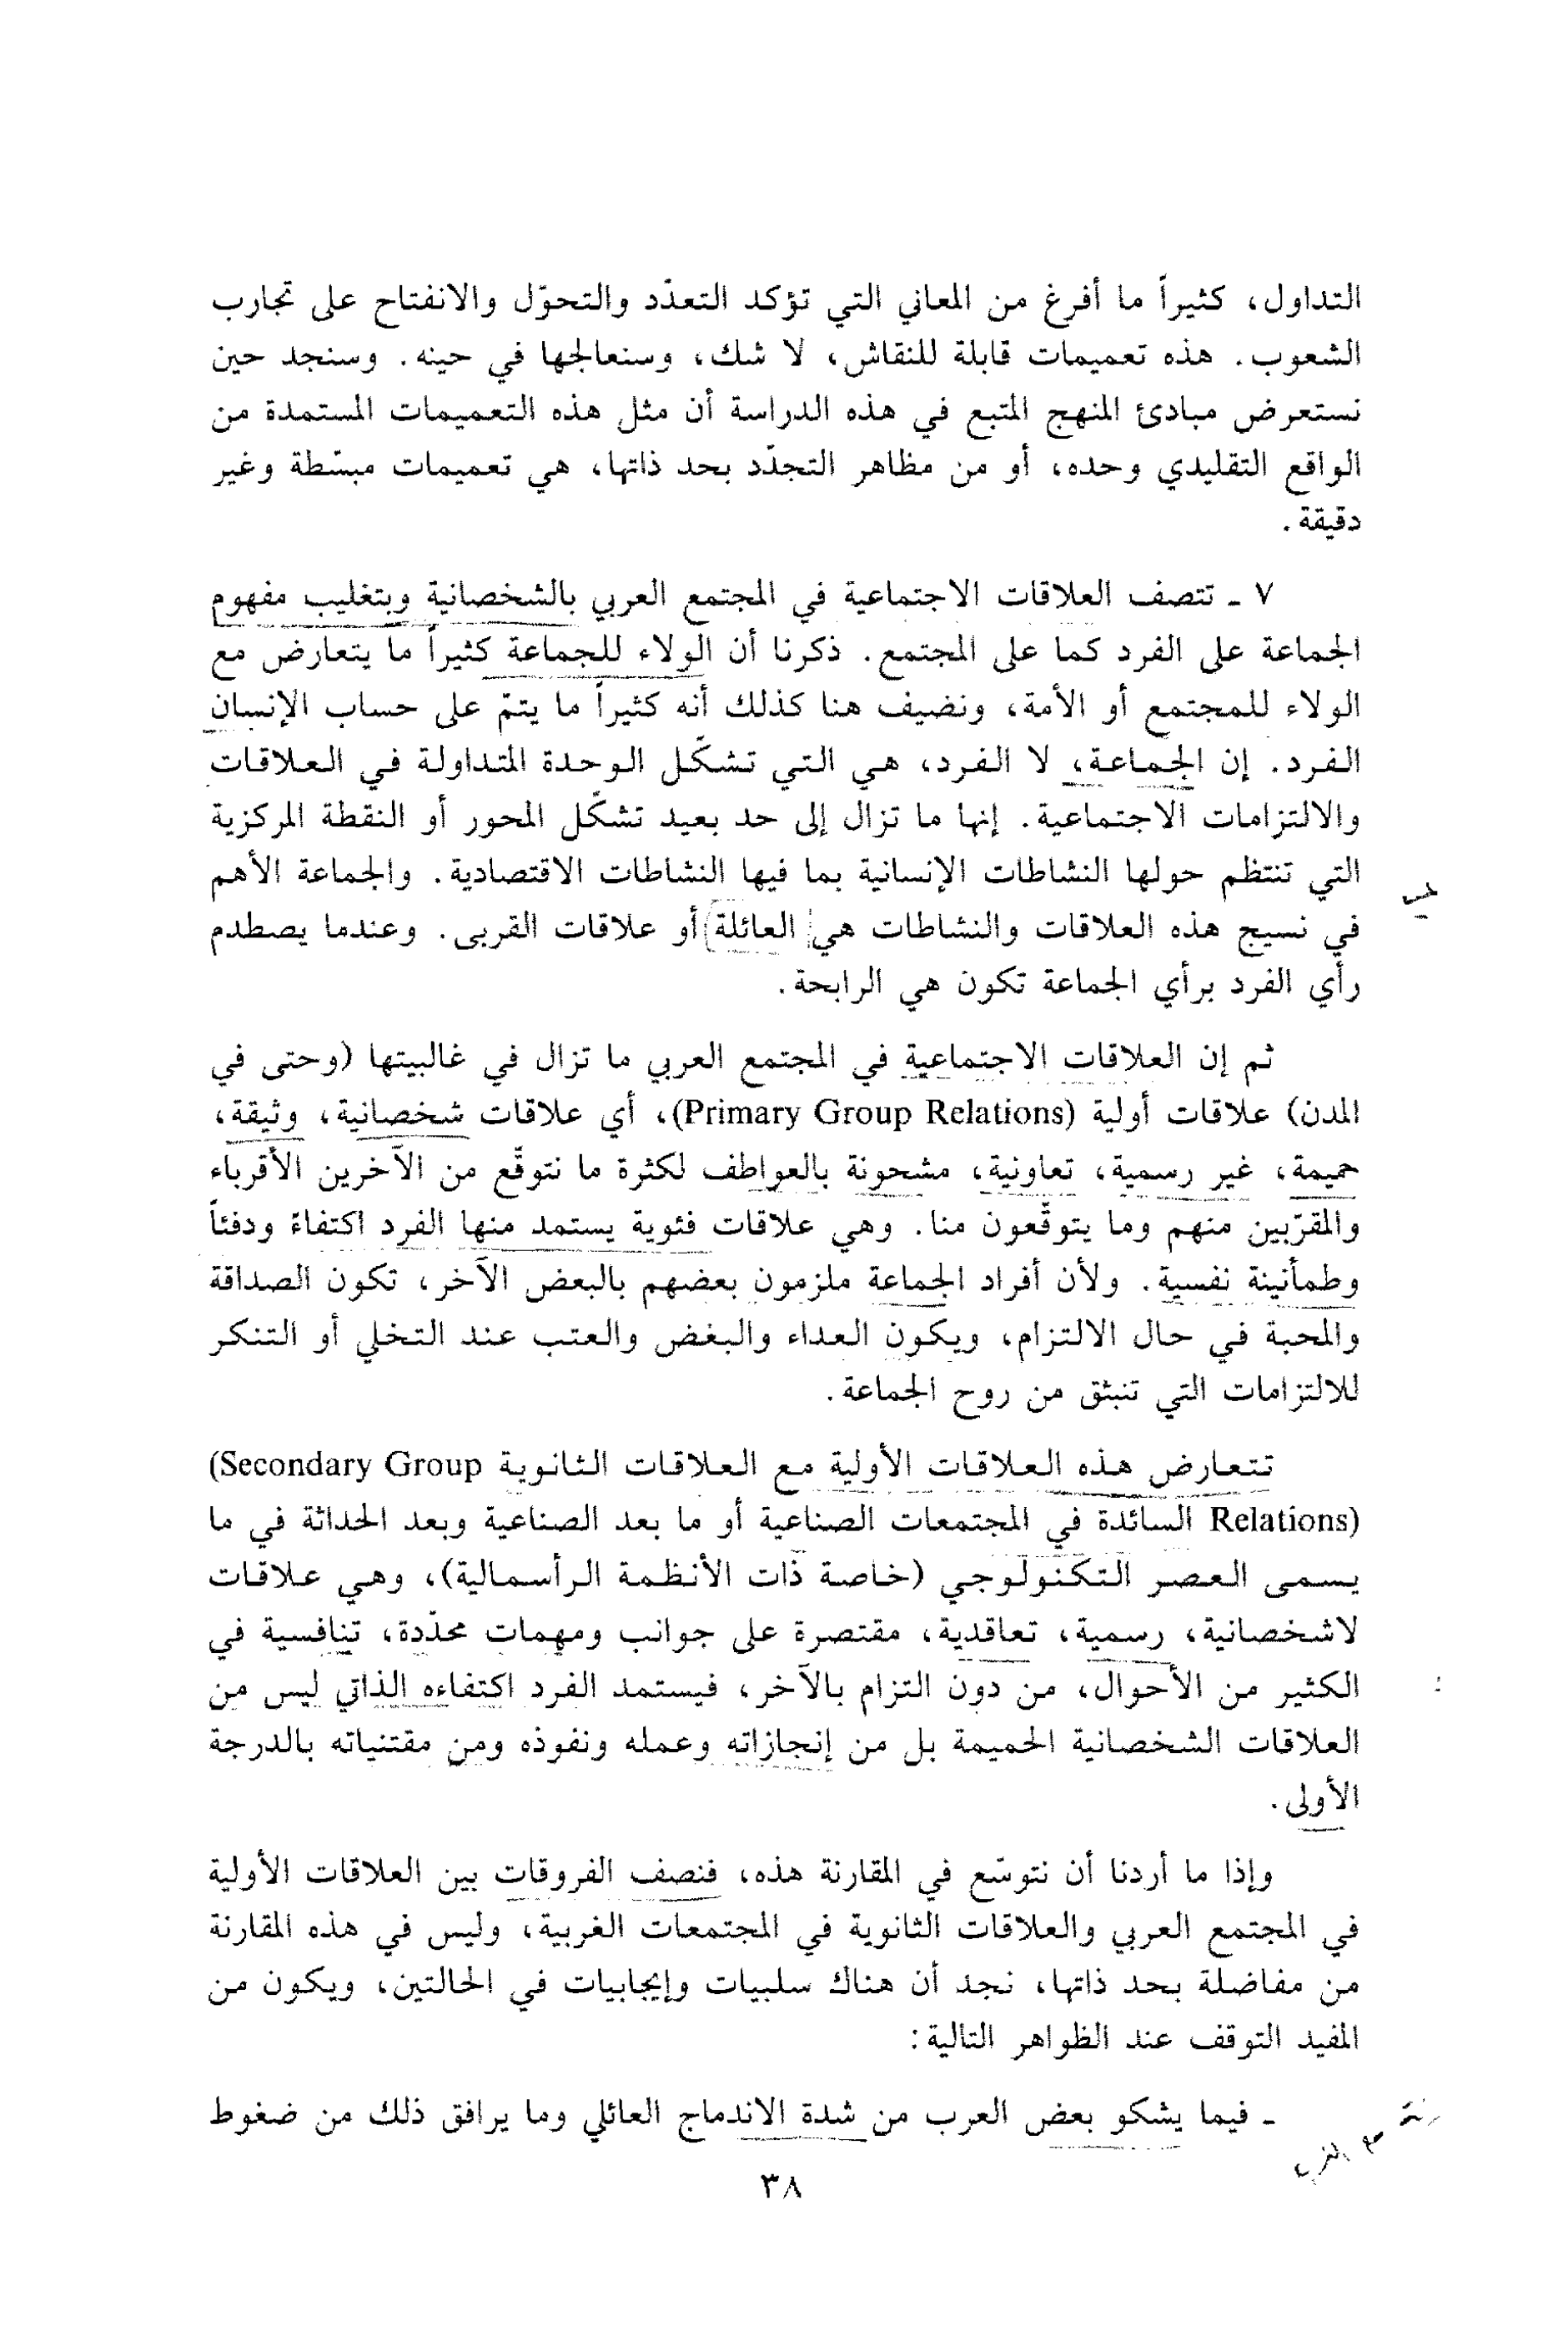 التداول، كثيراً ما أفرغ من المعاني التي تؤكد التعدّد والتحوّل والانفتاح على تجارب
الشعوب. هذه تعميمات قابلة للنقاش، لا شك، وسنعالجها في حينه. وسنجد حين
نستعرض مبادئ المنهج المتبع في هذه الدراسة أن مثل هذه التعميمات المستمدة من
الواقع التقليدي وحده، أو من مظاهر التجدّد بحد ذاتها، هي تعميمات مبسّطة وغير
دقيقة.
٧ - تتصف العلاقات الاجتماعية في المجتمع العربي بالشخصانية وبتغليب مفهوم
الجماعة على الفرد كما على المجتمع. ذكرنا أن الولاء للجماعة كثيراً ما يتعارض مع
الولاء للمجتمع أو الأمة، ونضيف هنا كذلك أنه كثيراً ما يتمّ على حساب الإنسان
الفرد. إن الجماعة، لا الفرد، هي التي تشكّل الوحدة المتداولة في العلاقات
والالتزامات الاجتماعية. إنها ما تزال إلى حد بعيد تشكّل المحور أو النقطة المركزية
التي تنتظم حولها النشاطات الإنسانية بما فيها النشاطات الاقتصادية. والجماعة الأهم
في نسيج هذه العلاقات والنشاطات هي العائلة أو علاقات القربى. وعندما يصطدم
رأي الفرد برأي الجماعة تكون هي الرابحة.
ثم إن العلاقات الاجتماعية في المجتمع العربي ما تزال في غالبيتها (وحتى في
المدن) علاقات أولية (Primary Group Relations)، أي علاقات شخصانية، وثيقة،
حميمة، غير رسمية، تعاونية، مشحونة بالعواطف لكثرة ما نتوقّع من الآخرين الأقرباء
والمقرّبين منهم وما يتوقّعون منا. وهي علاقات فئوية يستمد منها الفرد اكتفاءً ودفئاً
وطمأنينة نفسية. ولأن أفراد الجماعة ملزمون بعضهم بالبعض الآخر، تكون الصداقة
والمحبة في حال الالتزام، ويكون العداء والبغض والعتب عند التخلي أو التنكر
للالتزامات التي تنبثق من روح الجماعة.
تتعارض هذه العلاقات الأولية مع العلاقات الثانوية (Secondary Group
Relations) السائدة في المجتمعات الصناعية أو ما بعد الصناعية وبعد الحداثة في ما
يسمى العصر التكنولوجي (خاصة ذات الأنظمة الرأسمالية)، وهي علاقات
لاشخصانية، رسمية، تعاقدية، مقتصرة على جوانب ومهمات محدّدة، تنافسية في
الكثير من الأحوال، من دون التزام بالآخر، فيستمد الفرد اكتفاءه الذاتي ليس من
العلاقات الشخصانية الحميمة بل من إنجازاته وعمله ونفوذه ومن مقتنياته بالدرجة
الأولى.
وإذا ما أردنا أن نتوسّع في المقارنة هذه، فنصف الفروقات بين العلاقات الأولية
في المجتمع العربي والعلاقات الثانوية في المجتمعات الغربية، وليس في هذه المقارنة
من مفاضلة بحد ذاتها، نجد أن هناك سلبيات وإيجابيات في الحالتين، ويكون من
المفيد التوقف عند الظواهر التالية:
- فيما يشكو بعض العرب من شدة الاندماج العائلي وما يرافق ذلك من ضغوط
٣٨